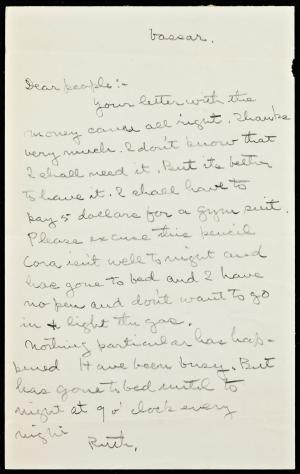 Vassar.
Dear people:-
Your letter with the
money came all right. Thanks
very much. I don't know that
I shall need it. But its better
to have it. I shall have to
pay 5 dollars for a gym suit.
Please excuse this pencil
Cora isn't well to night and
has gone to bed and I have
no pen and don't want to go
in & light the gas.
Nothing particular has hap-
pened I have been busy. But
has gone to bed until to
night at 9 o'clock every
night
Ruth.